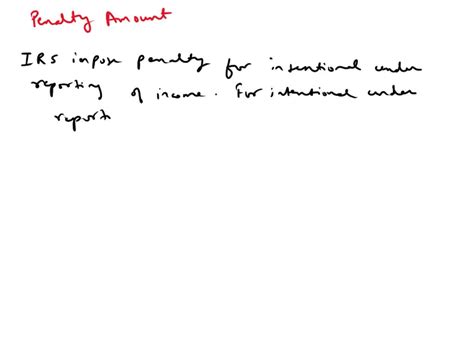 Penalty Amount
IRS impose penalty for intentional under
reporting of income. For intentional under
report